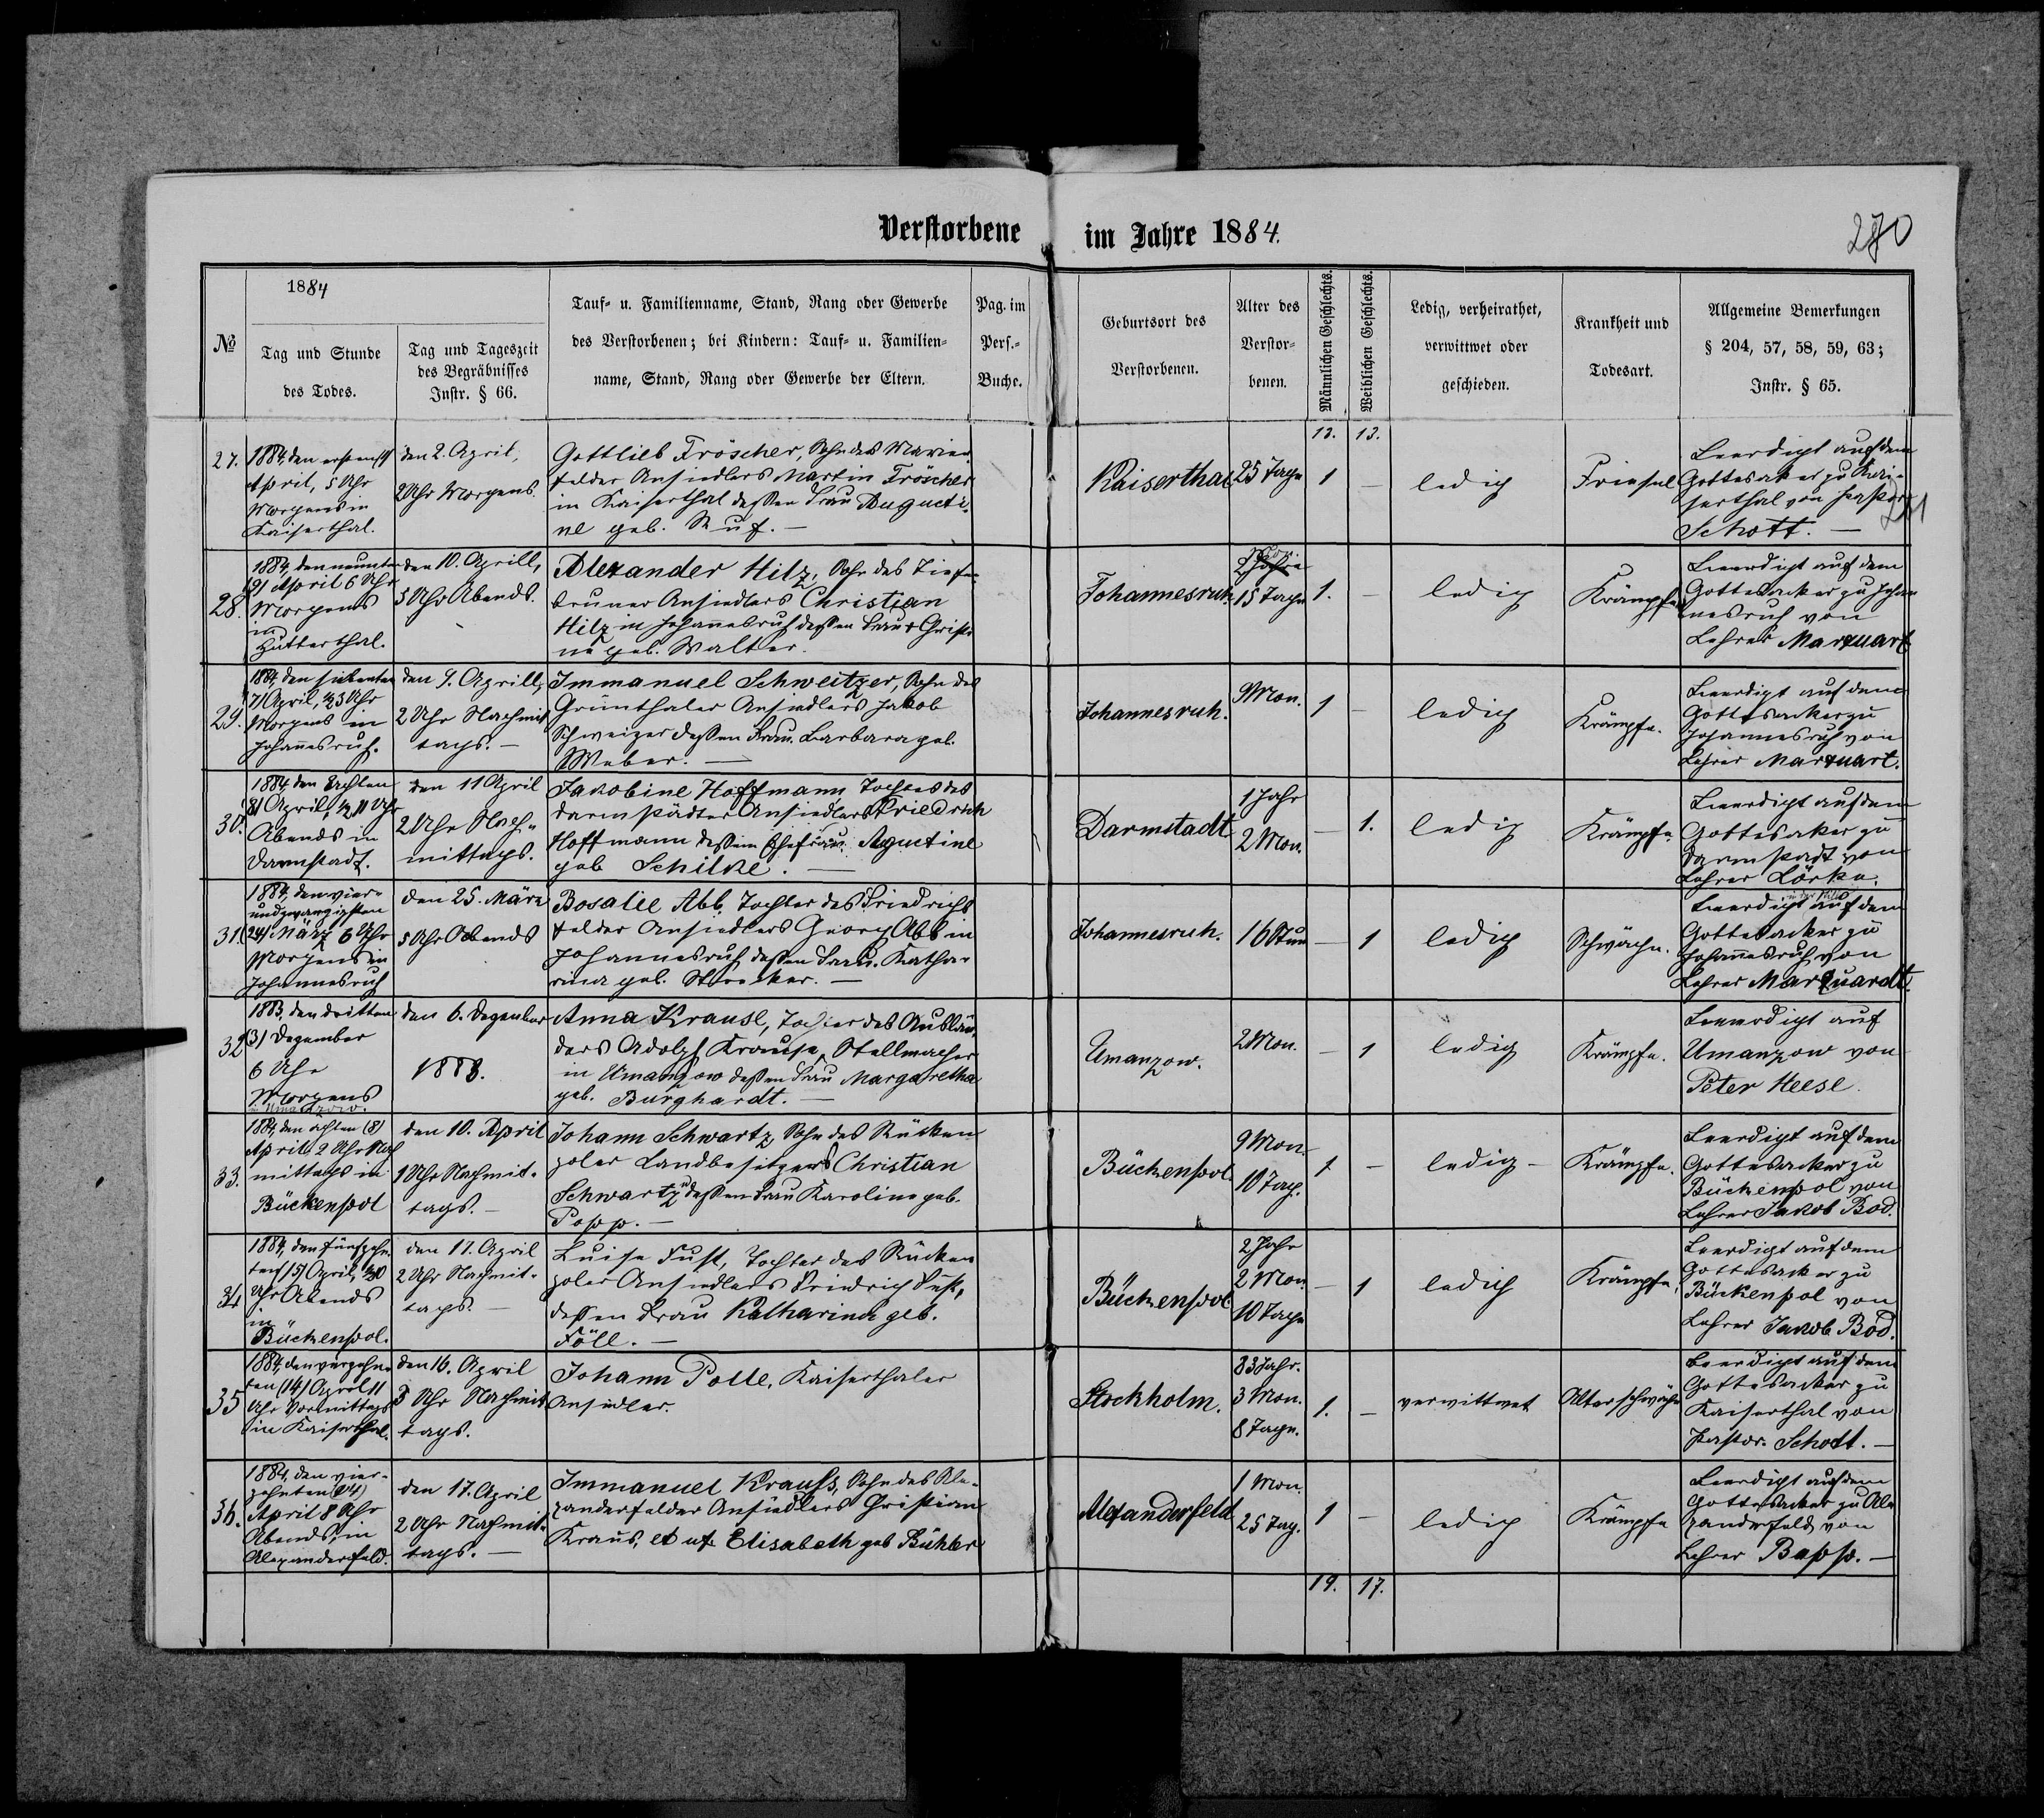 Verstorbene im Jahre 1884.
280
№
1884
Tag und Stunde
des Todes.
Tag und Tageszeit
des Begräbnisses
Instr. § 66.
Tauf- u. Familienname, Stand, Rang oder Gewerbe
des Verstorbenen; bei Kindern: Tauf- u. Familien-
name, Stand, Rang oder Gewerbe der Eltern.
Pag. im
Pers.-
Buche.
Geburtsort des
Verstorbenen.
Alter des
Verstor-
benen.
Männlichen Geschlechts.
Weiblichen Geschlechts.
Ledig, verheirathet,
verwittwet oder
geschieden.
Krankheit und
Todesart.
Allgemeine Bemerkungen
§ 204, 57, 58, 59, 63;
Instr. § 65.
13. 13.
27.
1884, den ersten
April, 5 Uhr
Morgens in
Kaiserthal.
den 2. April,
2 Uhr Morgens.
Gottlieb Fröscher, Sohn des Marien-
felder Ansiedlers Martin Fröscher
in Kaiserthal dessen Frau Augusti-
ne geb. Ruf. —
Kaiserthal
25 Tage
1
—
ledig
Friesel
Beerdigt auf dem
Gottesaker zu Kai-
serthal von Pastor
Schott. —
28.
1884, den neunten
(9) April 6 Uhr
Morgens
in
Hütterthal.
den 10. Aprill,
3 Uhr Abends.
Alexander Hilz, Sohn des Tiefen-
bruner Ansiedlers Christian
Hilz in Johannesruh dessen Frau Christi
ne geb. Walter.
Johannesruh.
2 Mon.
15 Tage
1.
—
ledig
Krämpfe
Beerdigt auf dem
Gottesacker zu Johan
nesruh von
Lehrer Marquart
29.
1884, den siebenten
7) April, ½3 Uhr
Morgens in
Johannesruh.
den 9. Aprill,
2 Uhr Nachmit
tags. —
Immanuel Schweitzer, Sohn des
Grünthaler Ansiedlers Jakob
Schweizer dessen Frau. Barbara geb.
Weber. —
Johannesruh.
9 Mon.
1
—
ledig
Krämpfe.
Beerdigt auf dem
Gottesacker zu
Johannesruh von
Lehrer Marquart.
30.
1884, den Achten
8) April, ½11 Uhr
Abends in
Darmstadt.
den 11 April
2 Uhr Nach-
mittags.
Jakobine Hoffmann Tochter des
Darmstädter Ansiedlers Friedrich
Hoffmann dessen Ehefrau Agustine
geb Schilke. —
Darmstadt
1 Jahr
2 Mon.
—
1.
ledig
Krämpfe.
Beerdigt auf dem
Gottesaker zu
Darmstadt von
Lehrer Lörke.
31.
1884, den vier-
undzwanzigsten
(24) März 6 Uhr
Morgens in
Johannesruh
den 25. März
5 Uhr Abends
Rosalie Abb, Tochter des Friedrichs
felder Ansiedlers Georg Abb in
Johannesruh dessen Frau. Katha-
rina geb. Strecker. —
Johannesruh.
16 Stun
—
1
ledig
Schwäche.
Beerdigt auf dem
Gottesacker zu
Johannesruh von
Lehrer Marquardt.
32
1883, den dritten
(3) Dezember
6 Uhr
Morgens
in Umanzow.
den 6. Dezember
1883.
Anna Krause, Tochter des Auslän-
ders Adolph Krause, Stellmacher
in Umanzow dessen Frau Margaretha
geb. Burghardt. —
Umanzow.
2 Mon.
—
1
ledig
Krämpfe.
Beerdigt auf
Umanzow von
Peter Heese.
33.
1884, den achten (8)
April 2 Uhr Nach
mittags in
Bückenpol
den 10. April
1 Uhr Nachmit-
tags. —
Johann Schwartz, Sohn des Rücken
poler Landbesitzers Christian
Schwartz dessen Frau Karoline geb.
Popp. —
Bückenpol
9 Mon.
10 Tag.
1.
—
ledig —
Krämpfe.
Beerdigt auf dem
Gottesacker zu
Bückenpol von
Lehrer Jakob Bod.
34
1884, den fünfzehn
ten 15) April, ½10
Uhr Abends
in
Bückenpol.
den 17. April
2 Uhr Nachmit-
tags. —
Luise Fust, Tochter des Rücken
poler Ansiedlers Friedrich Fust,
dessen Frau Katharina geb.
Föll. —
Bückenpol
2 Jahr
2 Mon.
10 Tage
—
1
ledig
Krämpfe.
Beerdigt auf dem
Gottesacker zu
Bückenpol von
Lehrer Jakob Bod.
35
1884, den vierzehn-
ten (14) April 11
Uhr Vormittags
in Kaiserthal.
den 16. April
3 Uhr Nachmit
tags.
Johann Polle, Kaiserthaler
Ansiedler.
Stockholm.
83 Jahr.
3 Mon.
8 Tage.
1.
—
verwittwet
Altersschwäche
Beerdigt auf dem
Gottesacker zu
Kaiserthal von
Pastor Schott. —
36.
1884, den vier-
zehnten (14)
April 8 Uhr
Abends, in
Alexanderfeld.
den 17. April
2 Uhr Nachmit-
tags. —
Immanuel Krauß, Sohn des Ale-
xanderfelder Ansiedlers Christian
Kraus, et ux. Elisabeth geb Bühler
Alexanderfeld
1 Mon.
25 Tag.
1
—
ledig
Krämpfe
Beerdigt auf dem
Gottesacker zu Ale
xanderfeld von
Lehrer Bapp. —
19. 17.